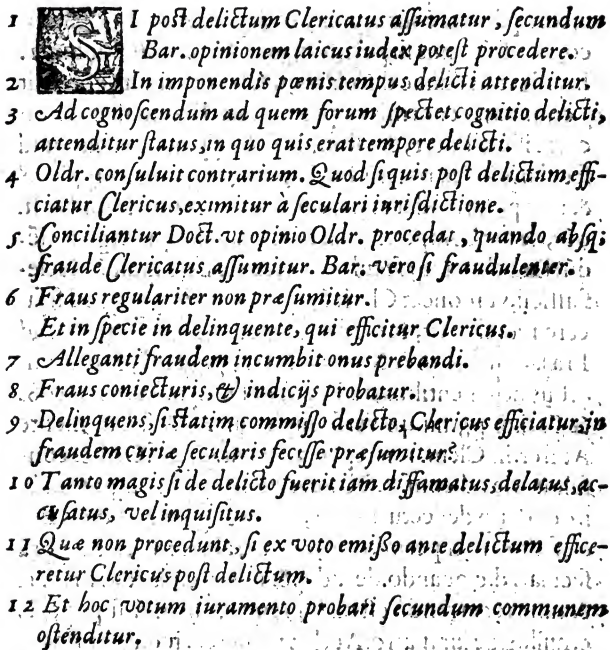 1 SI post delictum Clericatus assumatur, secundum
Bar. opinionem laicus iudex potest procedere.
2 In imponendis pœnis tempus delicti attenditur.
3 Ad cognoscendum ad quem forum spectet cognitio delicti,
attenditur status, in quo quis erat tempore delicti.
4 Oldr. consuluit contrarium. Quod si quis post delictum effi-
ciatur Clericus, eximitur à seculari iurisdictione.
5 Conciliantur Doct. vt opinio Oldr. procedat, quando absq;
fraude Clericatus assumitur. Bar. vero si fraudulenter.
6 Fraus regulariter non præsumitur.
Et in specie in delinquente, qui efficitur Clericus.
7 Alleganti fraudem incumbit onus prebandi.
8 Fraus coniecturis, & indicijs probatur.
9 Delinquens, si statim commisso delicto, Clericus efficiatur, in
fraudem curiæ secularis fecisse præsumitur?
10 Tanto magis si de delicto fuerit iam diffamatus, delatus, ac-
cusatus, vel inquisitus.
11 Quæ non procedunt, si ex voto emisso ante delictum effice-
retur Clericus post delictum.
12 Et hoc votum iuramento probari secundum communem
ostenditur.